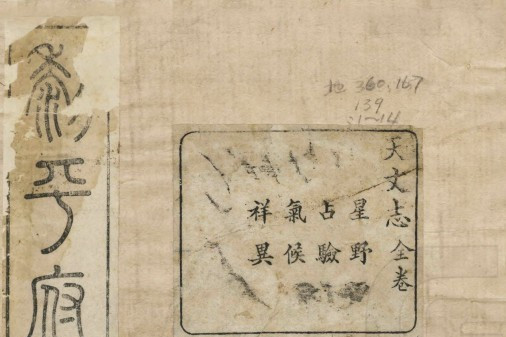 地 360.167
139
:1~14
天文志全卷
星野
占驗
氣候
祥異
黎平府